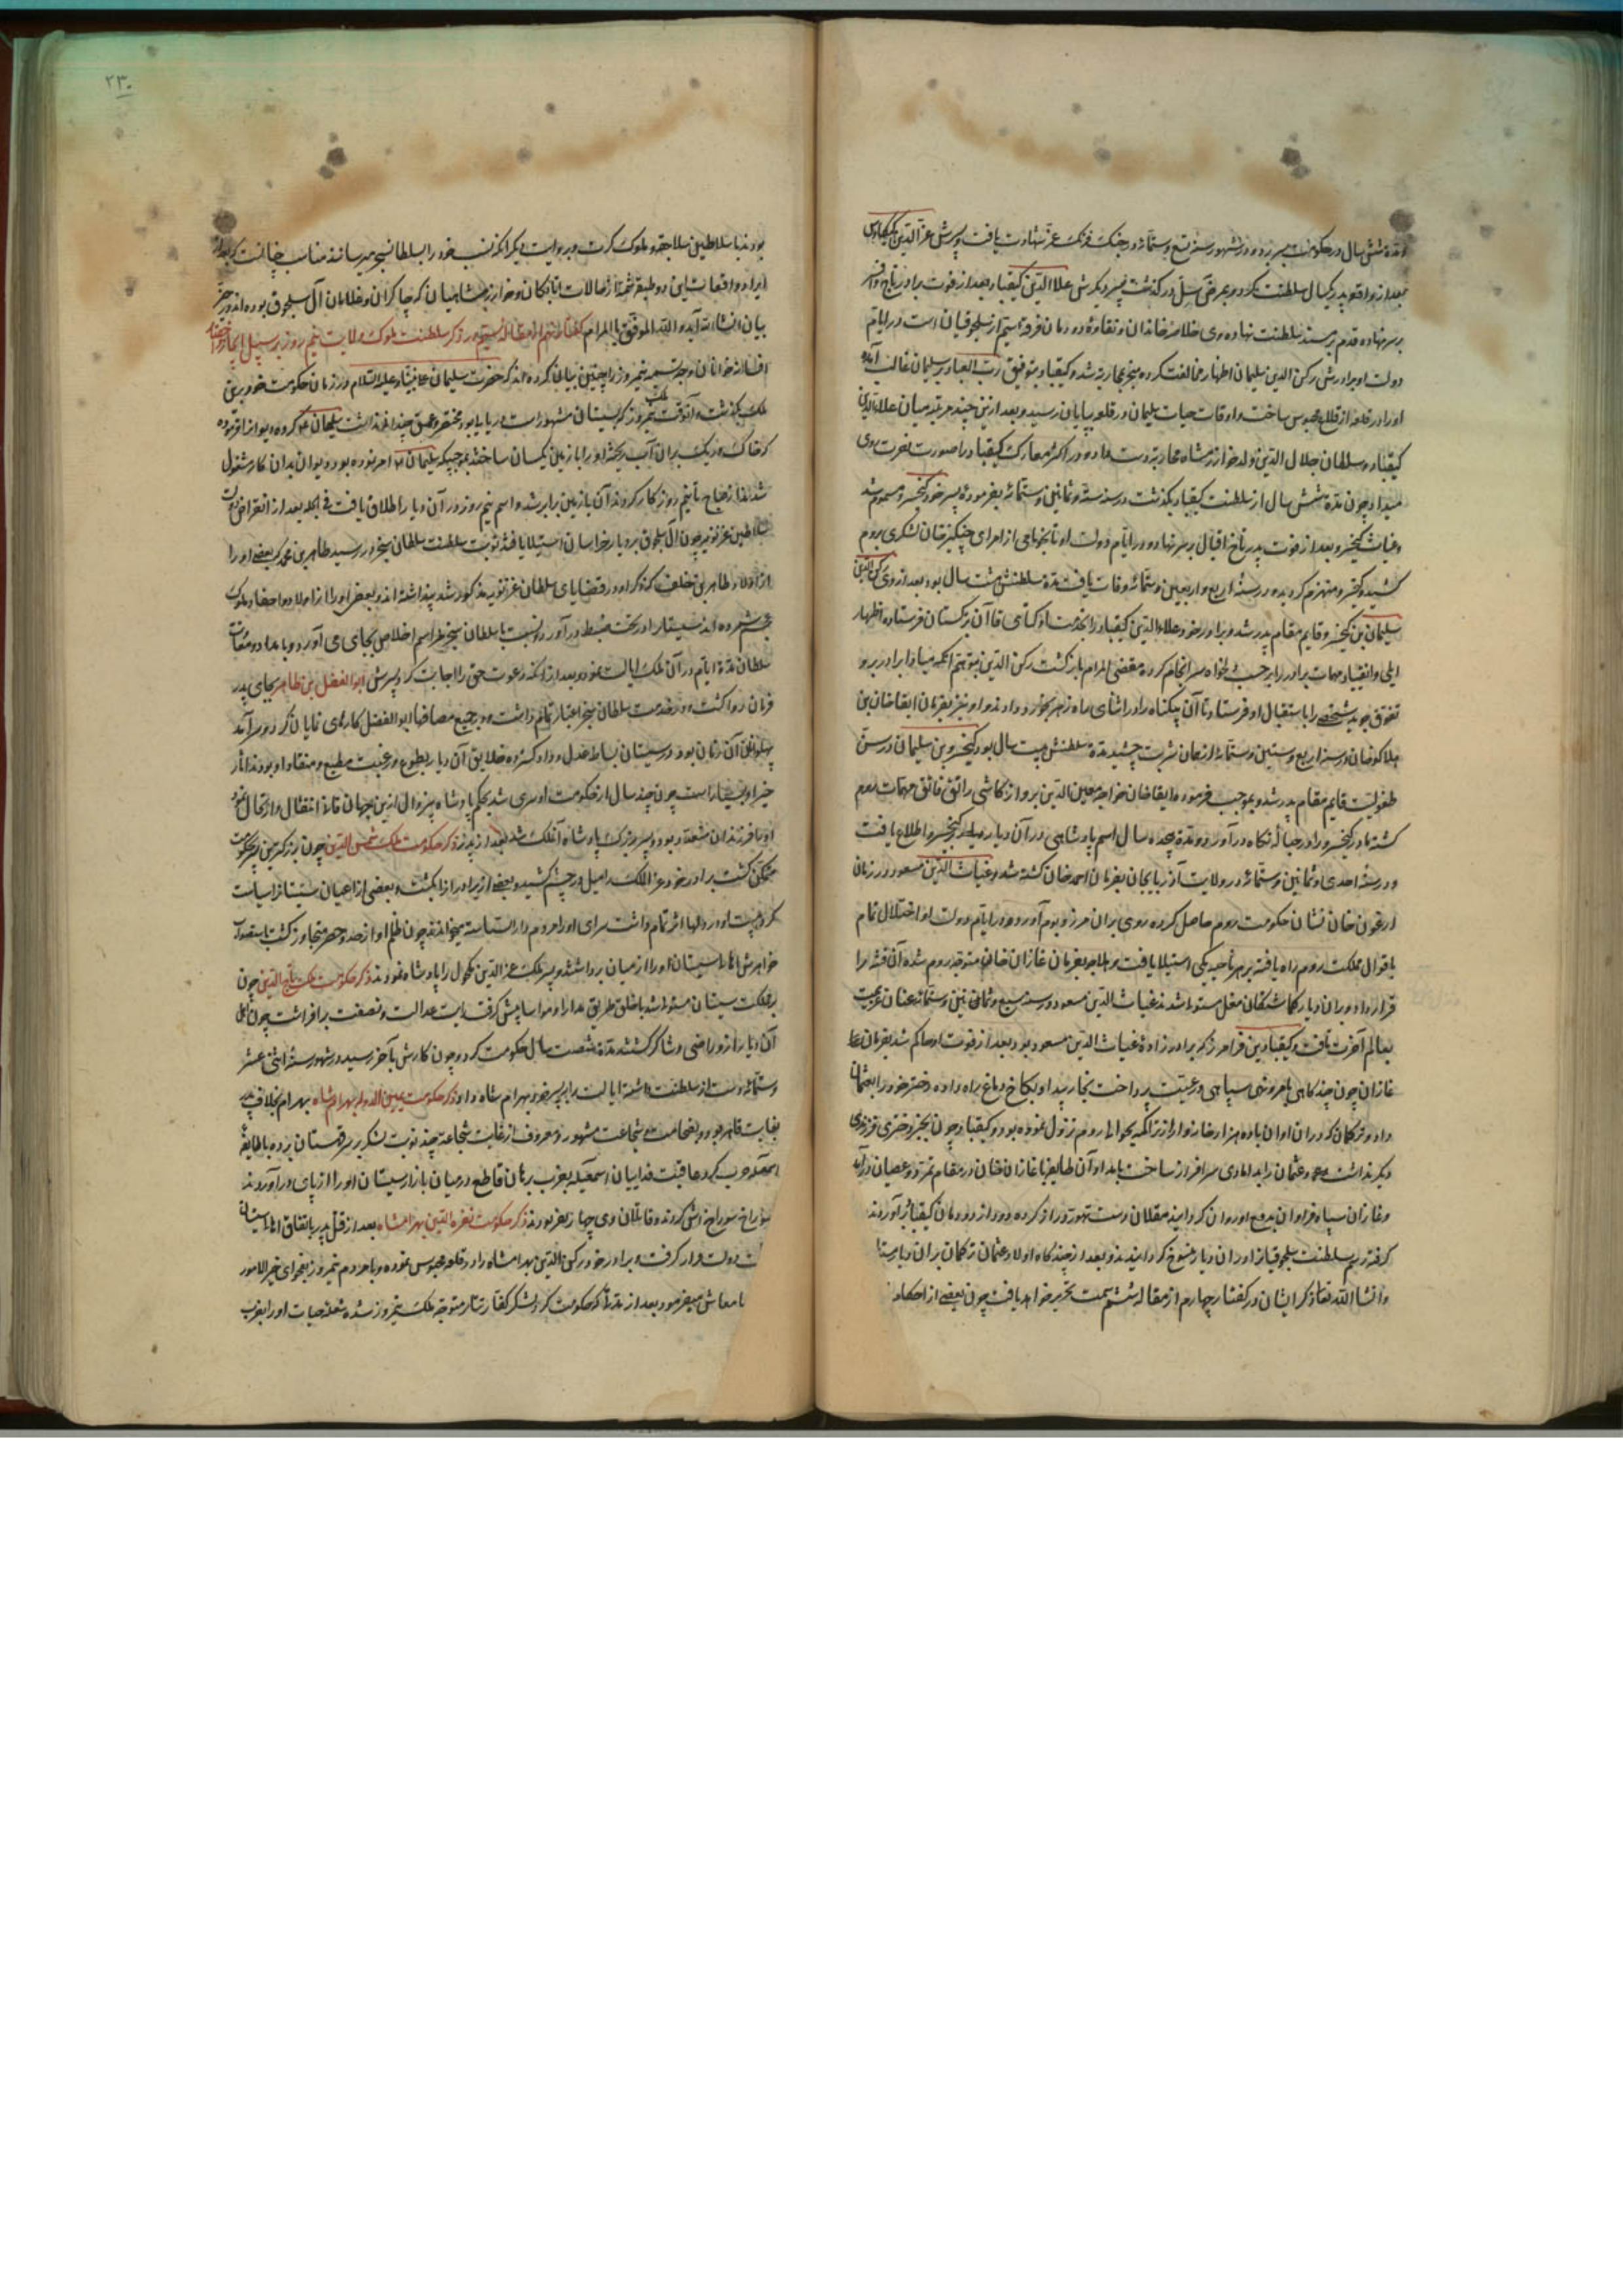 مدت شش سال در حکومت بسر برده و در شهور سنه تسع و ستمائه در جنک فرنک عز شهادت یافت و پسرش عزالدین کیکاوس
بعد از واقعه پدر یکسال سلطنت کرد و بمرض سل در کذشت پسر دیکرش علاالدین کیقباد بعد از فوت برادر تاج و افسر
بر سر نهاده قدم بر مسند سلطنت نهاد و وی خلاصه خاندان و نقاوه دودمان فرقه سیم از سلجوقیان است در ایام
دولت او برادرش رکن الدین سلیمان اظهار مخالفت کرده منجر بمحاربه شد و کیقباد بتوفیق رب العباد بر سلیمان غالب آمده
او را در قلعه از قلاع محبوس ساخت و اوقات حیات سلیمان در قلعه بپایان رسید و بعد ازین چند مرتبه میان علاءالدین
کیقباد و سلطان جلال الدین ولد خوارزمشاه محاربه دست داده و در اکثر معارک کیقباد را صورت نصرت روی
میداد و چون مدة شش سال از سلطنت کیقباد بکذشت در سنه ستة و ثمانین و ستمائه بفرموده پسر خود کیخسرو مسموم شد
و غیاث کیخسرو بعد از فوت پدر تاج اقبال بر سر نهاد و در ایام دولت او تایجو نامی از امرای چنکیزخان لشکری بروم
کشید و کیخسرو منهزم کردیده در سنه اربع و اربعین و ستمائه وفات یافت مدة سلطنتش هشت سال بود بعد از وی رکن الدین
سلیمان بن کیخسرو قایم مقام پدر شد و برادر خود علاءالدین کیقباد را بخدمت اوکتای قاآن بترکستان فرستاده اظهار
ایلی و انقیاد مهمات برادر را بر حسب دلخواه سر انجام کرده مقضی المرام باز کشت رکن الدین بتوهم آنکه مبادا برادر برو
تفوق جوید شخصی را باستقبال او فرستاد تا آن بیکناه را در اثنای راه زهر بخورد داد و او نیز بفرمان ابقاخان بن
هلاکوخان در سنه اربع و ستین و ستمائه از همان شربت چشید مدة سلطنتش بیست سال بود کیخسرو بن سلیمان در سن
طفولیت قایم مقام پدر شد و بموجب فرموده ابقاخان خواجه معین الدین پروانه کاشی راتق فاتق مهمات روم
کشته مادر کیخسرو را در حباله نکاه در آورد و مدة هجده سال اسم پادشاهی در آن دیار بر کیخسرو اطلاع یافت
و در سنه احدی و ثمانین و ستمائه در ولایت آذربایجان بفرمان احمد خان کشته شد و غیاث الدین مسعود در زمان
ارغون خان نشان حکومت روم حاصل کرده روی بران مرز و بوم آورد و در ایام دولت او اختلال تمام
باقوال مملکت روم راه یافته بر هر ناحیه یکی استیلا یافت بفرمان غازان خان متوجه روم شده آن فتنه را
قرار داد و بران دیار کماشتکان مغل مستولی شدند غیاث الدین مسعود در سنه سبع و ثمانین و ستمائه عنان عزیمت
بعالم آخرت تافت و کیقباد بن فرامرز که برادر زاده غیاث الدین مسعود بود بعد از فوت او حاکم شد بفرمان
غازان چون چندکاهی بامر و نهی سپاهی و رعیت پرداخت بخار پندار بکاخ دماغ راه داده دختر خود را بعثمان
داد و ترکمان که دران اوان با ده هزار خانه وار از تراکمه بحوالی روم نزول نموده بود و کیقباد چون بجز دختری فرزندی
دیکر نداشت عثمان را بدامادی سر افراز ساخت بامداد آن طایفه با غازان خان در مقام تمرد و عصیان در آمد
و غازان سپاه فراوان بدفع او روان کردانید مغلان دست تهور دراز کرده دود از دودمان کیقباد برآوردند
کرفته رسم سلطنت سلجوقیان را دران دیار منسوخ کردانیدند و بعد از چندکاه اولاد عثمان ترکمان بران دیار
وانشاالله تعالی ذکر ایشان در کفتار چهارم از مقاله ششم سمت تحریر خواهد یافت چون بعضی از احکام
۲۳۰
بودند با سلاطین سلاجقه و ملوک کرت و بروایت دیکر آنکه نسب خود را بسلطان سنجر میرسانند مناسب چنانست که بعد از
ایراد واقعات این دو طبقه شمه از حالات اتابکان و خوارزمشاهیان که چاکران و غلامان آل سلجوق بوده اند در حیز
بیان انشاءالله آید والله الموفق بالمرام کفتار نهم از مقاله سیم در ذکر سلطنت ملوک ولایت نیمروز بر سبیل ایجاز و اختصار
افسانه خوانان وجه تسمیه نیمروز را چنین بیان کرده اند که حضرت سلیمان علی نبینا و علیه السلام در زمان حکومت خود برین
ملک بکذشت و آنوقت ملک نیمروز که بسیستان مشهور است دریای بود مختصر و عمق چندانی نداشت سلیمان حکم کرده دیوان را فرموده
که خاک و ریک بران آب ریخته آنرا با زمین یکسان ساختند بموجبیکه سلیمان امر نموده بود دیوان بدان کار مشغول
شدند از صباح تا نیم روز کار کردند آن با زمین برابر شد و اسم نیم روز در آن دیار اطلاق یافت فی الجمله بعد از انقراض دولت
سلاطین غزنویه چون آل سلجوق بر دیار خراسان استیلا یافتند نوبت سلطنت سلطان سنجر رسید طاهر بن محمد که بعضی او را
از اولاد طاهر بن خلف که ذکر او در قضایای سلطان غزنویه مذکور شد پنداشته اند و بعضی او را از اولاد و احفاد ملوک
عجم شمرده اند سیستان را در تحت ضبط در آورد و نسبت با سلطان سنجر مراسم اخلاص بجای می آورد و بامداد و معاونت
سلطان مدة ایام در آن ملک ایالت نموده بعد از آنکه دعوت حق را اجابت کرد پسرش ابوالفضل بن طاهر بجای پدر
فرمان روا کشت و در خدمت سلطان سنجر اعتبار تمام داشت و در جمیع مصافها ابوالفضل کارهای نمایان کرد و سرآمد
پهلوانان آن زمان بود و در سیستان بساط عدل و داد کسترده خلایق آن دیار بطوع و رغبت مطیع و منقاد او بودند آثار
خیر او بسیار است چون چند سال از حکومت او سپری شد بحکم پادشاه بیزوال ازین جهان فانی انتقال و ارتحال نمود
او با فرزندان متعدد بود و پسر بزرک پادشاه آنملک شد بعد از پدر ذکر حکومت ملک شمس الدین چون بزرکترین بر حکومت
متمکن کشت برادر خود عزالملک را میل در چشم کشید و بعضی از برادران را بکشت و بعضی از اعیان سیستان را سیاست
کرد هیبت او در دلها اثر تمام داشت سرای او را مردم دارالسیاسة میخواندند چون ظلم او از حد و حصر متجاوز کشت باستصواب
خواهرش اهالی سیستان او را از میان برداشتند و پسر ملک عزالدین مکحول را پادشاه نمودند ذکر حکومت ملک تاج الدین چون
بر مملکت سیستان مستولی شد با خلق طریق مدارا و مواسا پیش کرفت رایت عدالت و نصفت برافراشت چون اهالی
آن دیار از و راضی و شاکر کشتند مدة شصت سال حکومت کرد و چون کارش بآخر رسید در شهور سنه اثنی عشر
و ستمائه دست از سلطنت داشته ایالت را به پسر خود بهرام شاه داد ذکر حکومت یمین الدوله بهرام شاه بهرام بخلاف پدر
بغایت قاهر بود و بضخامت و شجاعت مشهور و معروف از غایت شجاعة چند نوبت لشکر بر سر قهستان برده با طایفه
اسمعیلیه حرب کرد عاقبت فداییان اسمعیلیه بضرب برهان قاطع در میان بازار سیستان او را از پای درآوردند
سوراخ سوراخش کردند و قاتلان وی چهار نفر بودند ذکر حکومت نصرة الدین بهرامشاه بعد از قتل پدر باتفاق اهالی سیستان
دولت قرار کرفت و برادر خود رکن الدین بهرامشاه را در قلعه محبوس نموده و با مردم نیمروز بفحوای خیر الامور
با معاش میفرمود بعد از مدتی که حکومت کرد لشکر کفار تتار متوجه ملک نیمروز شده شعله حیات او را بضرب